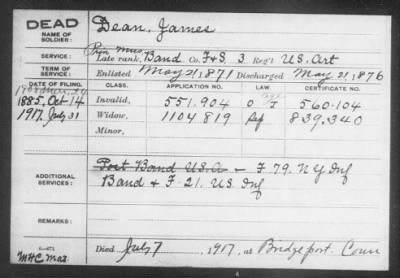 DEAD
NAME OF SOLDIER: Dean, James
SERVICE: Prin Mus Late rank, Band Co. F&S, 3 Reg't U.S. Art
TERM OF SERVICE: Enlisted May 21 1871 Discharged May 21, 1876
DATE OF FILING. CLASS. APPLICATION NO. LAW. CERTIFICATE NO.
1885, Oct 14 Invalid, 551.904 560.104
1917, July 31 Widow, 1104819 839,340
Minor,
ADDITIONAL SERVICES: Post Band U.S.A - F 79. N.Y Inf
Band & F. 21. U.S. Inf
REMARKS:
Died July 7, 1917, at Bridgeport. Conn